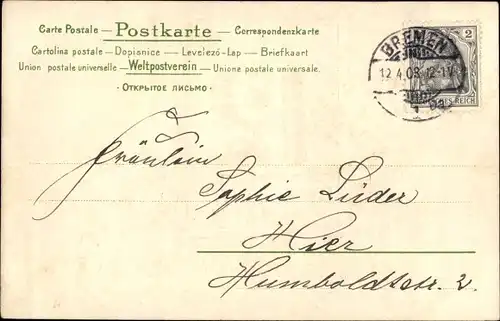 Carte Postale – Postkarte – Correspondenzkarte
Cartolina postale – Dopisnice – Levelező-Lap – Briefkaart
Union postale universelle – Weltpostverein – Unione postale universale.
· ОТКРЫТОЕ ПИСЬМО ·
2
BREMEN
12.4.03.12-1V
1
REICH
Fräulein
Sophie Lüder
Hier
Humboldtstr. 2.